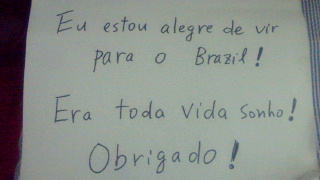 Eu estou alegre de vir
para o Brazil!
Era toda vida sonho!
Obrigado!